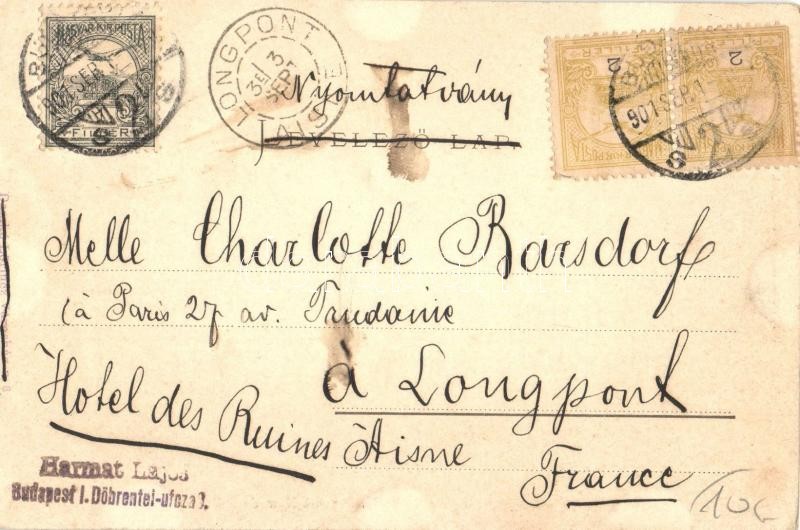 MAGYAR KIR. POSTA
FILLÉR
901 SEP. 1
LONGPONT
AISNE
3E
3
SEPT
Nyomtatvány
LEVELEZŐ LAP.
2 2
901 SEP. 1
Melle Charlotte Barsdorf
(à Paris 27 av. Trudaine
Hotel des Ruines
à Longpont
Aisne
France
Harmat Lajos
Budapest I. Döbrentei-utcza
10c